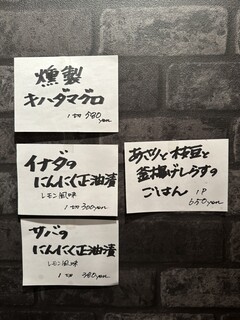 燻製
キハダマグロ
1切 580yen
イナダの
にんにく正油漬
レモン風味
1切 300yen
サバの
にんにく正油漬
レモン風味
1切 380yen
と枝豆と
釜揚げしらすの
ごはん 1P
650yen